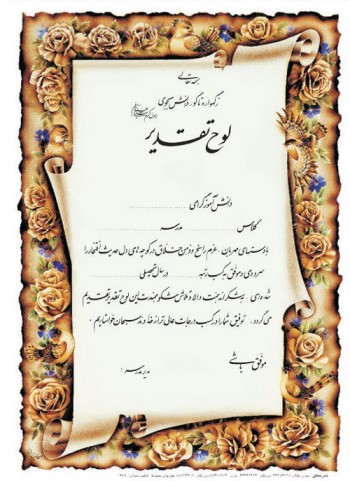 بسمه تعالی
زگهواره تا گور دانش بجوی
لوح تقدیر
دانش آموز گرامی
کلاس مدرسه
با دستهای مهربان، عزم راسخ و ذهن خلاق در کوچه های دل حدیث افتخار را
سروده ای و موفق به کسب رتبه در سال تحصیلی
شده ای. به شکرانه همت والا و تلاش شکوهمندت این لوح تقدیر تقدیم
می گردد، توفیق شما را در کسب درجات عالی تر از خداوند سبحان خواستاریم.
موفق باشی
مدیر مدرسه: